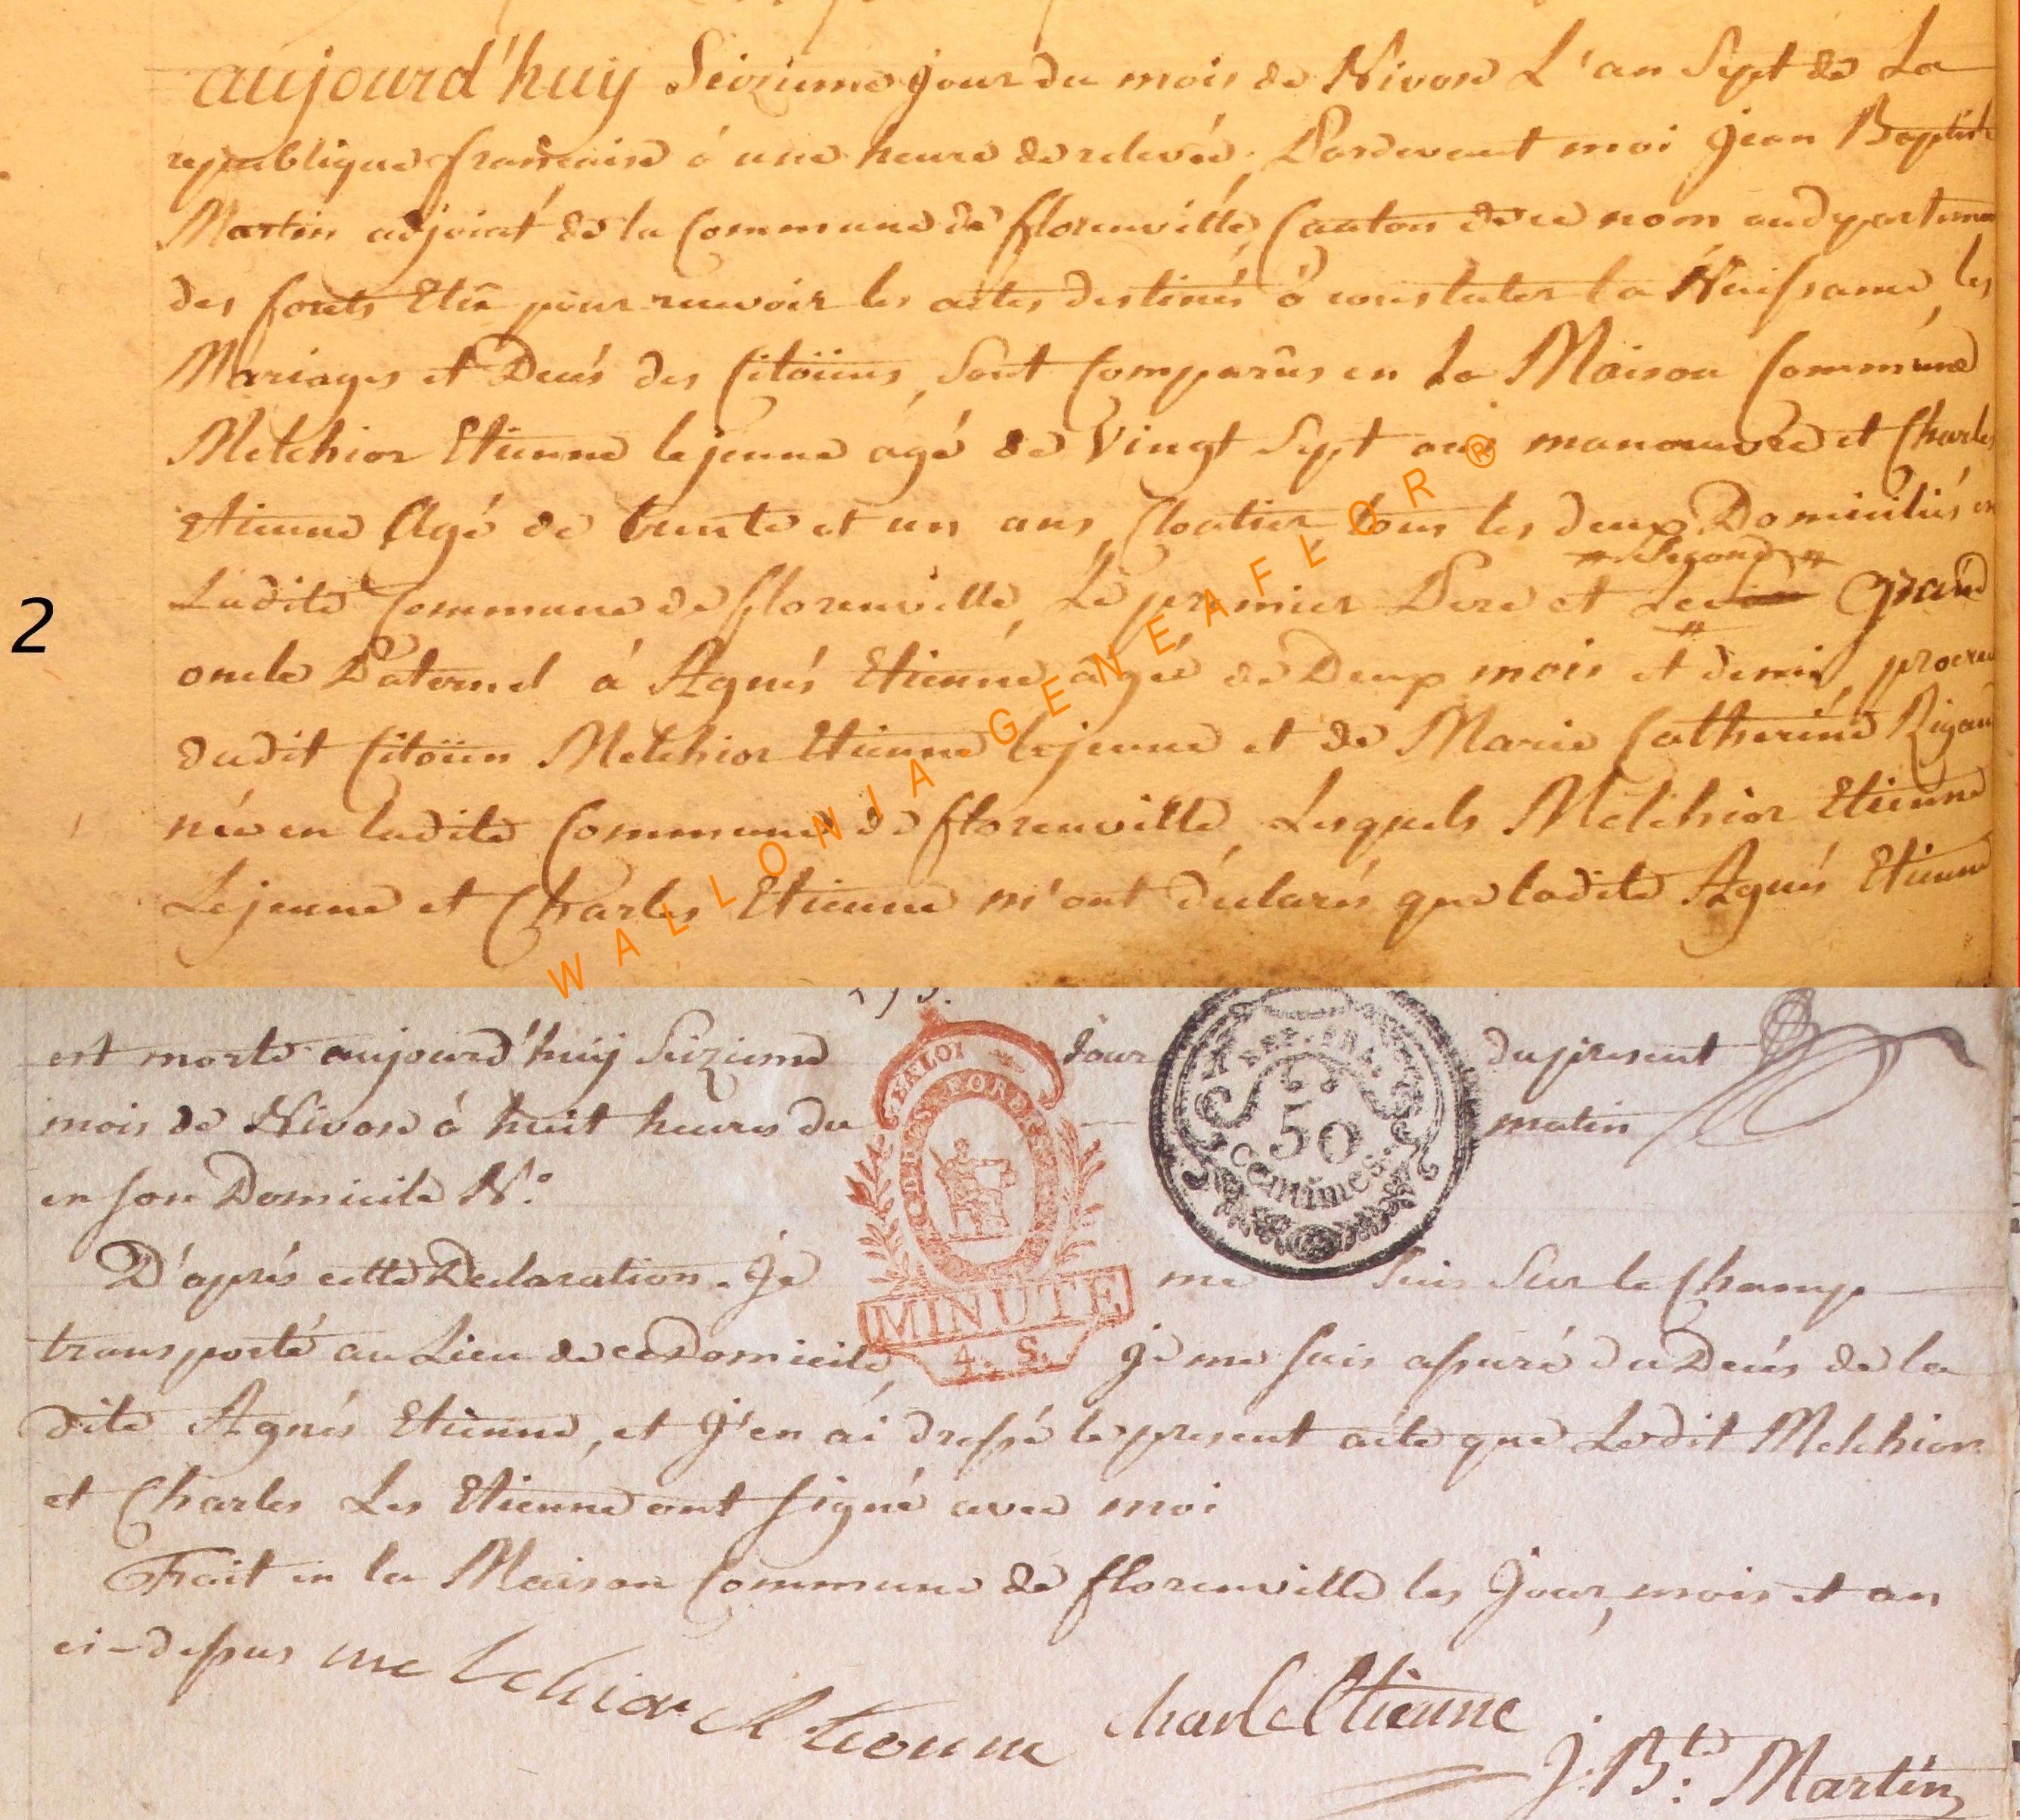 aujourd'huy Seizieme jour du mois de Nivose L'an Sept de La
republique francaise á une heure de relevée, Pardevant moi jean Baptiste
Martin adjoint de la Commune de florenville, Canton de ce nom audepartement
des forets Elû pour recevoir les actes destinés á constater la Naissance, les
Mariages et Decés des Citoïens, Sont Comparûs en la Maison Commune
Melchior Etienne lejeune agé de Vingt Sept ans manoeuvre et Charles
etienne Agé de trente et un ans, Cloutier tous les deux Domiciliés en
Ladite Commune de florenville, Le premier Pere et Le
" Second "
Grand
2
oncle Paternel á Agnés Etienne agée de Deux mois et demi, procreé
dudit Citoïen Melchior Etienne lejeune et de Marie Catherine Rigaud
née en ladite Commune de florenville, Lesquels Melchior Etienne
Lejeune et Charles Etienne m'ont déclarés que ladite Agnés Etienne
WALLONIA GENEAFLOR®
est morte aujourd'huy Seizieme Jour du present
mois de Nivose á huit heures du matin
en son Domicile N.º
D'aprés cette Declaration. Je me suis Sur le Champ
transporté au Lieu de ce Domicile, je me suis assuré du Decés de la
dite Agnés Etienne, et j'en ai dressé le present acte que Ledit Melchior
et Charles Les Etienne ont signé avec moi
Fait en la Maison Commune de florenville les Jour, mois et an
ci-dessus
melchior Etienne
charle Etienne
J. B.te: Martin
LA LOI
DEP. DES FORETS
MINUTE
4. S.
REP. FRA.
50
Centimes